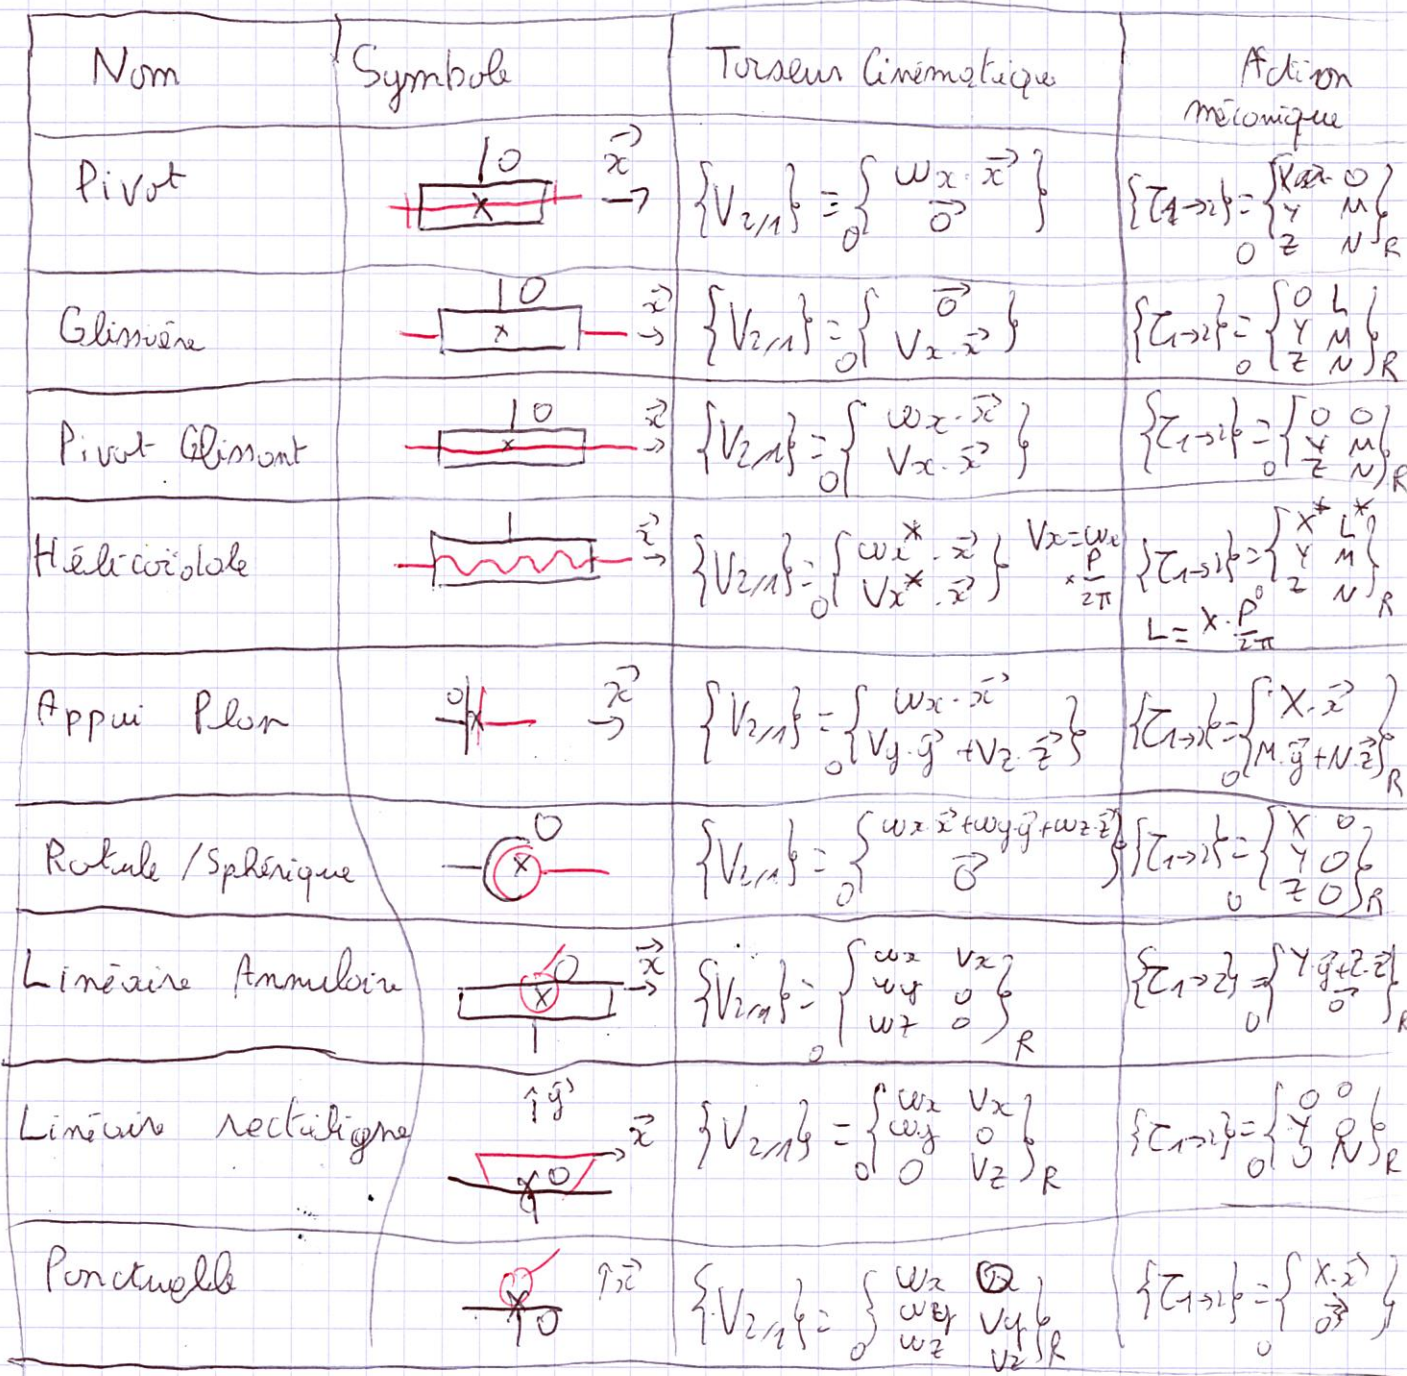 Nom Symbole Torseur Cinématique Action mécanique
Pivot O x⃗ {V2/1} = O{ ωx·x⃗ ; 0⃗ } {τ1→2} = O{ X 0 ; Y M ; Z N }R
Glissière O x⃗ {V2/1} = O{ 0⃗ ; Vx·x⃗ } {τ1→2} = O{ 0 L ; Y M ; Z N }R
Pivot Glissant O x⃗ {V2/1} = O{ ωx·x⃗ ; Vx·x⃗ } {τ1→2} = O{ 0 0 ; Y M ; Z N }R
Hélicoïdale x⃗ {V2/1} = O{ ωx*·x⃗ ; Vx*·x⃗ } Vx=ωx × P/2π {τ1→2} = O{ X* L* ; Y M ; Z N }R
L = X·P/2π
Appui Plan O x⃗ {V2/1} = O{ ωx·x⃗ ; Vy·y⃗ + Vz·z⃗ } {τ1→2} = O{ X·x⃗ ; M·y⃗ + N·z⃗ }R
Rotule / Sphérique O {V2/1} = O{ ωx·x⃗ + ωy·y⃗ + ωz·z⃗ ; 0⃗ } {τ1→2} = O{ X 0 ; Y 0 ; Z 0 }R
Linéaire Annulaire O x⃗ {V2/1} = O{ ωx Vx ; ωy 0 ; ωz 0 }R {τ1→2} = O{ Y·y⃗ + Z·z⃗ ; 0⃗ }R
Linéaire rectiligne y⃗ x⃗ O {V2/1} = O{ ωx Vx ; ωy 0 ; 0 Vz }R {τ1→2} = O{ 0 0 ; Y 0 ; 0 N }R
Ponctuelle x⃗ O {V2/1} = O{ ωx 0 ; ωy Vy ; ωz Vz }R {τ1→2} = O{ X·x⃗ ; 0⃗ }